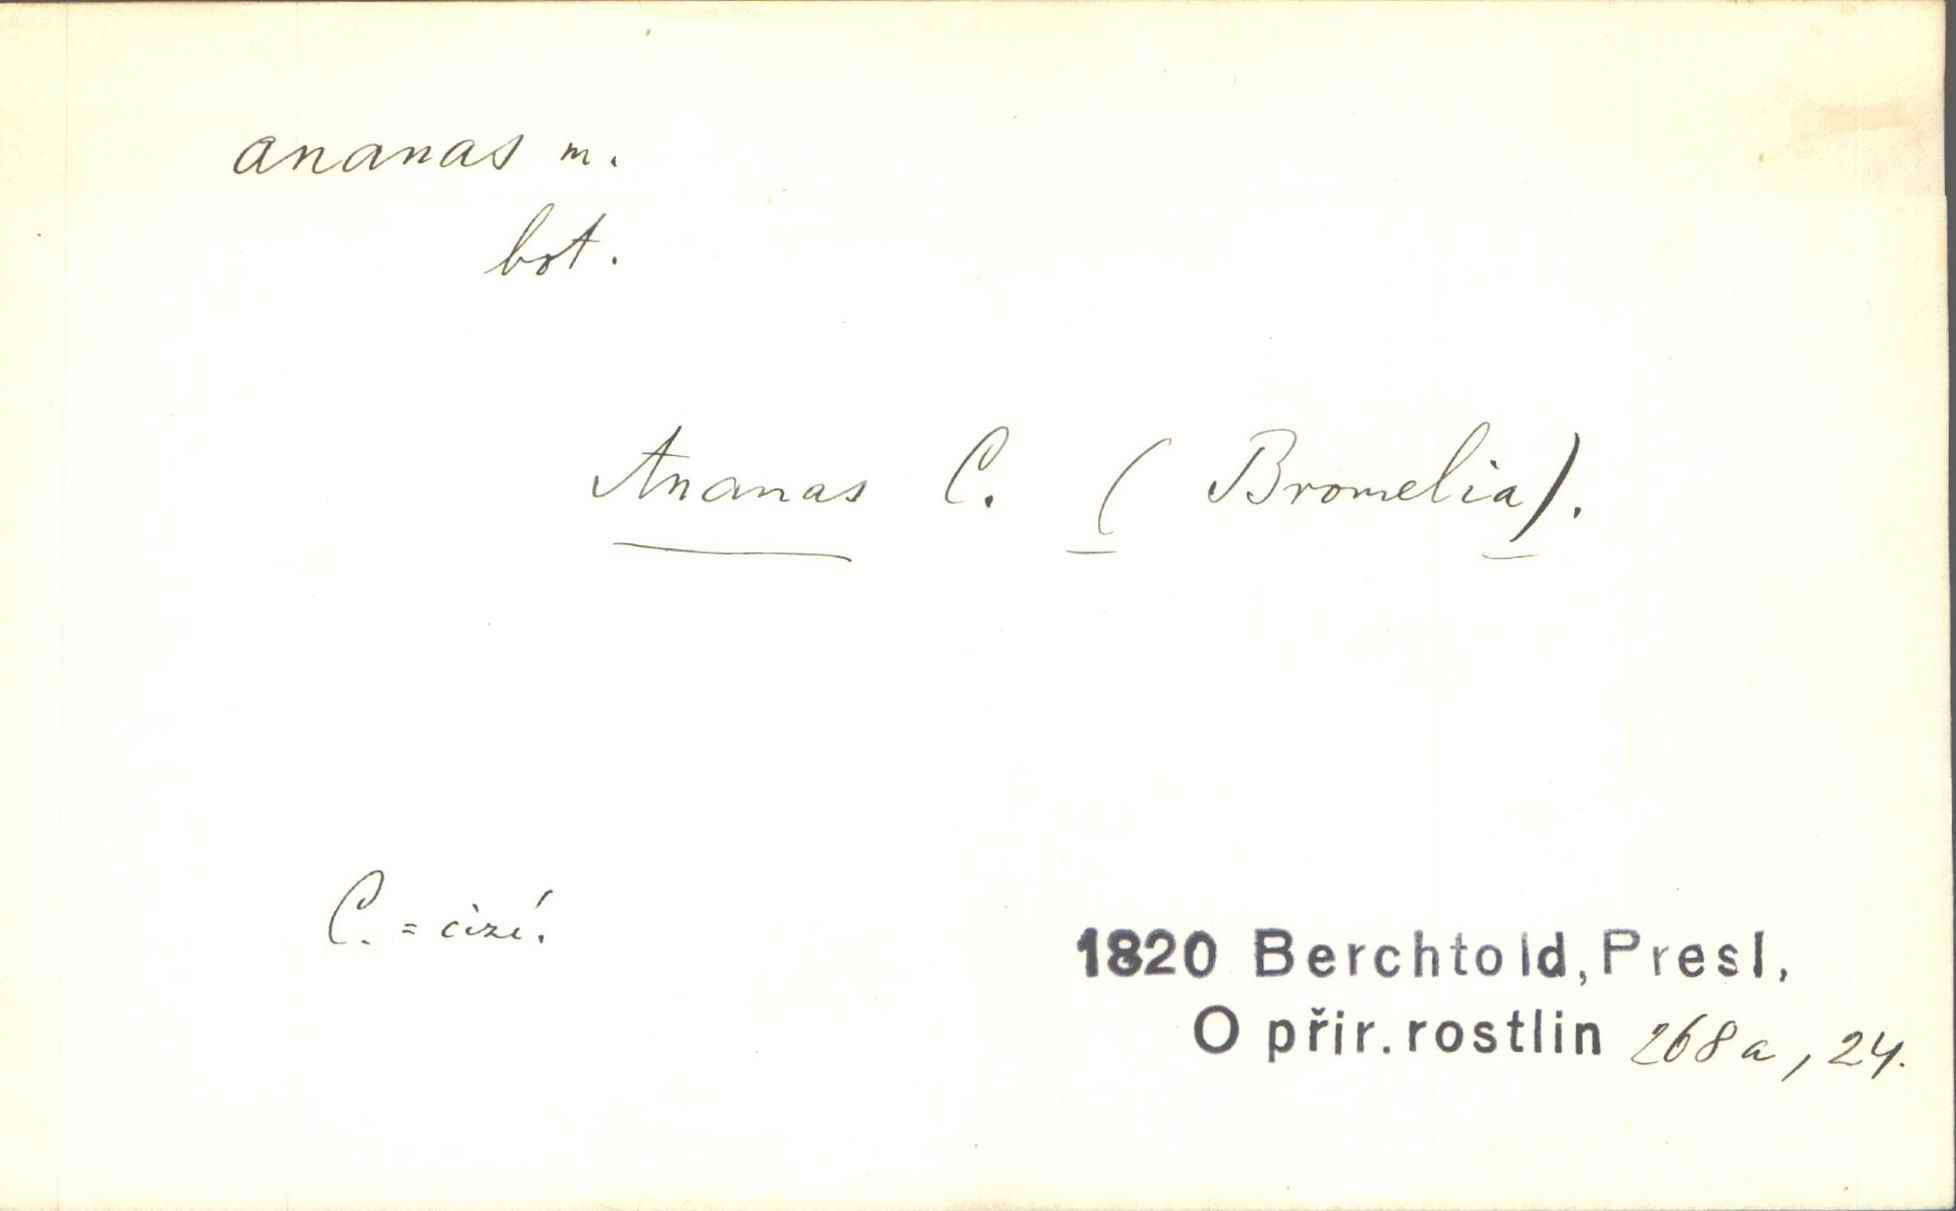 ananas m.
bot.
Ananas C. (Bromelia).
C. = cizí.
1820 Berchtold, Presl,
O přir. rostlin 268a, 24.